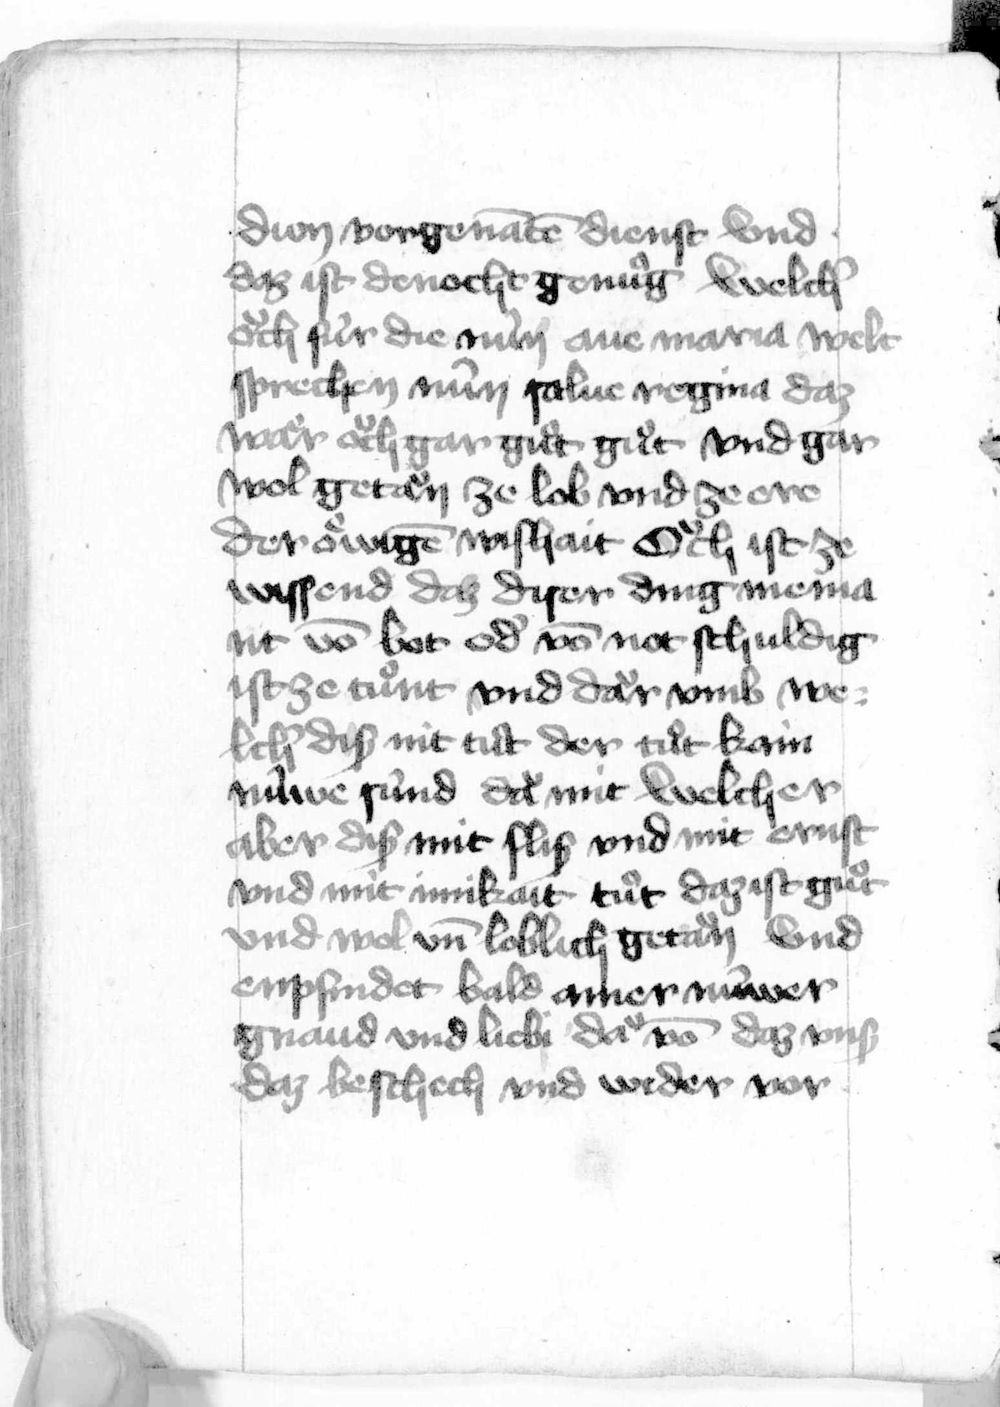 disen vorgenāten dienst Vnd
daz ist denocht genůg Welch͛
ǒch fúr die nún aue maria welt
sprechen nún salue regina daz
wär ǒch gar gůt gůt vnd gar
wol getǎn ze lob vnd ze ere
der ewigē wishait Ǒch ist ze
wissend daz diser ding niema
nt vō bot od͛ vō not schuldig
ist ze tůnt vnd dǎr vmb we⸗
lch͛ diß nit tůt der tůt kain
núwe súnd dǎ mit Welcher
aber diß mit fliß vnd mit ernst
vnd mit inikait tůt daz ist gůt
vnd wol vn̄ loblich getǎn Vnd
enpfindet bald ainer núwer
gnaud vnd liebi dǎ vō daz vnß
daz beschech vnd wider vor